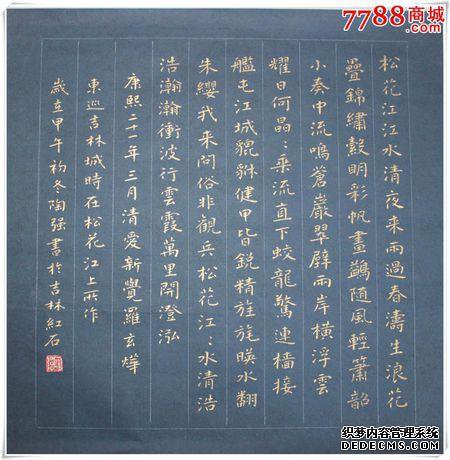 7788商城
松花江江水清夜来雨過春濤生浪花
疊錦繡縠明彩帆畫鷁随風輕簫韶
小奏中流鳴蒼巖翠壁兩岸橫浮雲
耀日何晶:乘流直下蛟龍驚連檣接
艦屯江城貔貅健甲皆銳精旌旄暎水翻
朱纓我来问俗非觀兵松花江:水清浩
浩瀚瀚衝波行雲霞萬里開澄泓
康熙二十一年三月清愛新覺羅玄燁
東巡吉林城時在松花江上所作
歲在甲午初冬陶强書於吉林紅石
织梦内容管理系统
DEDECMS.COM